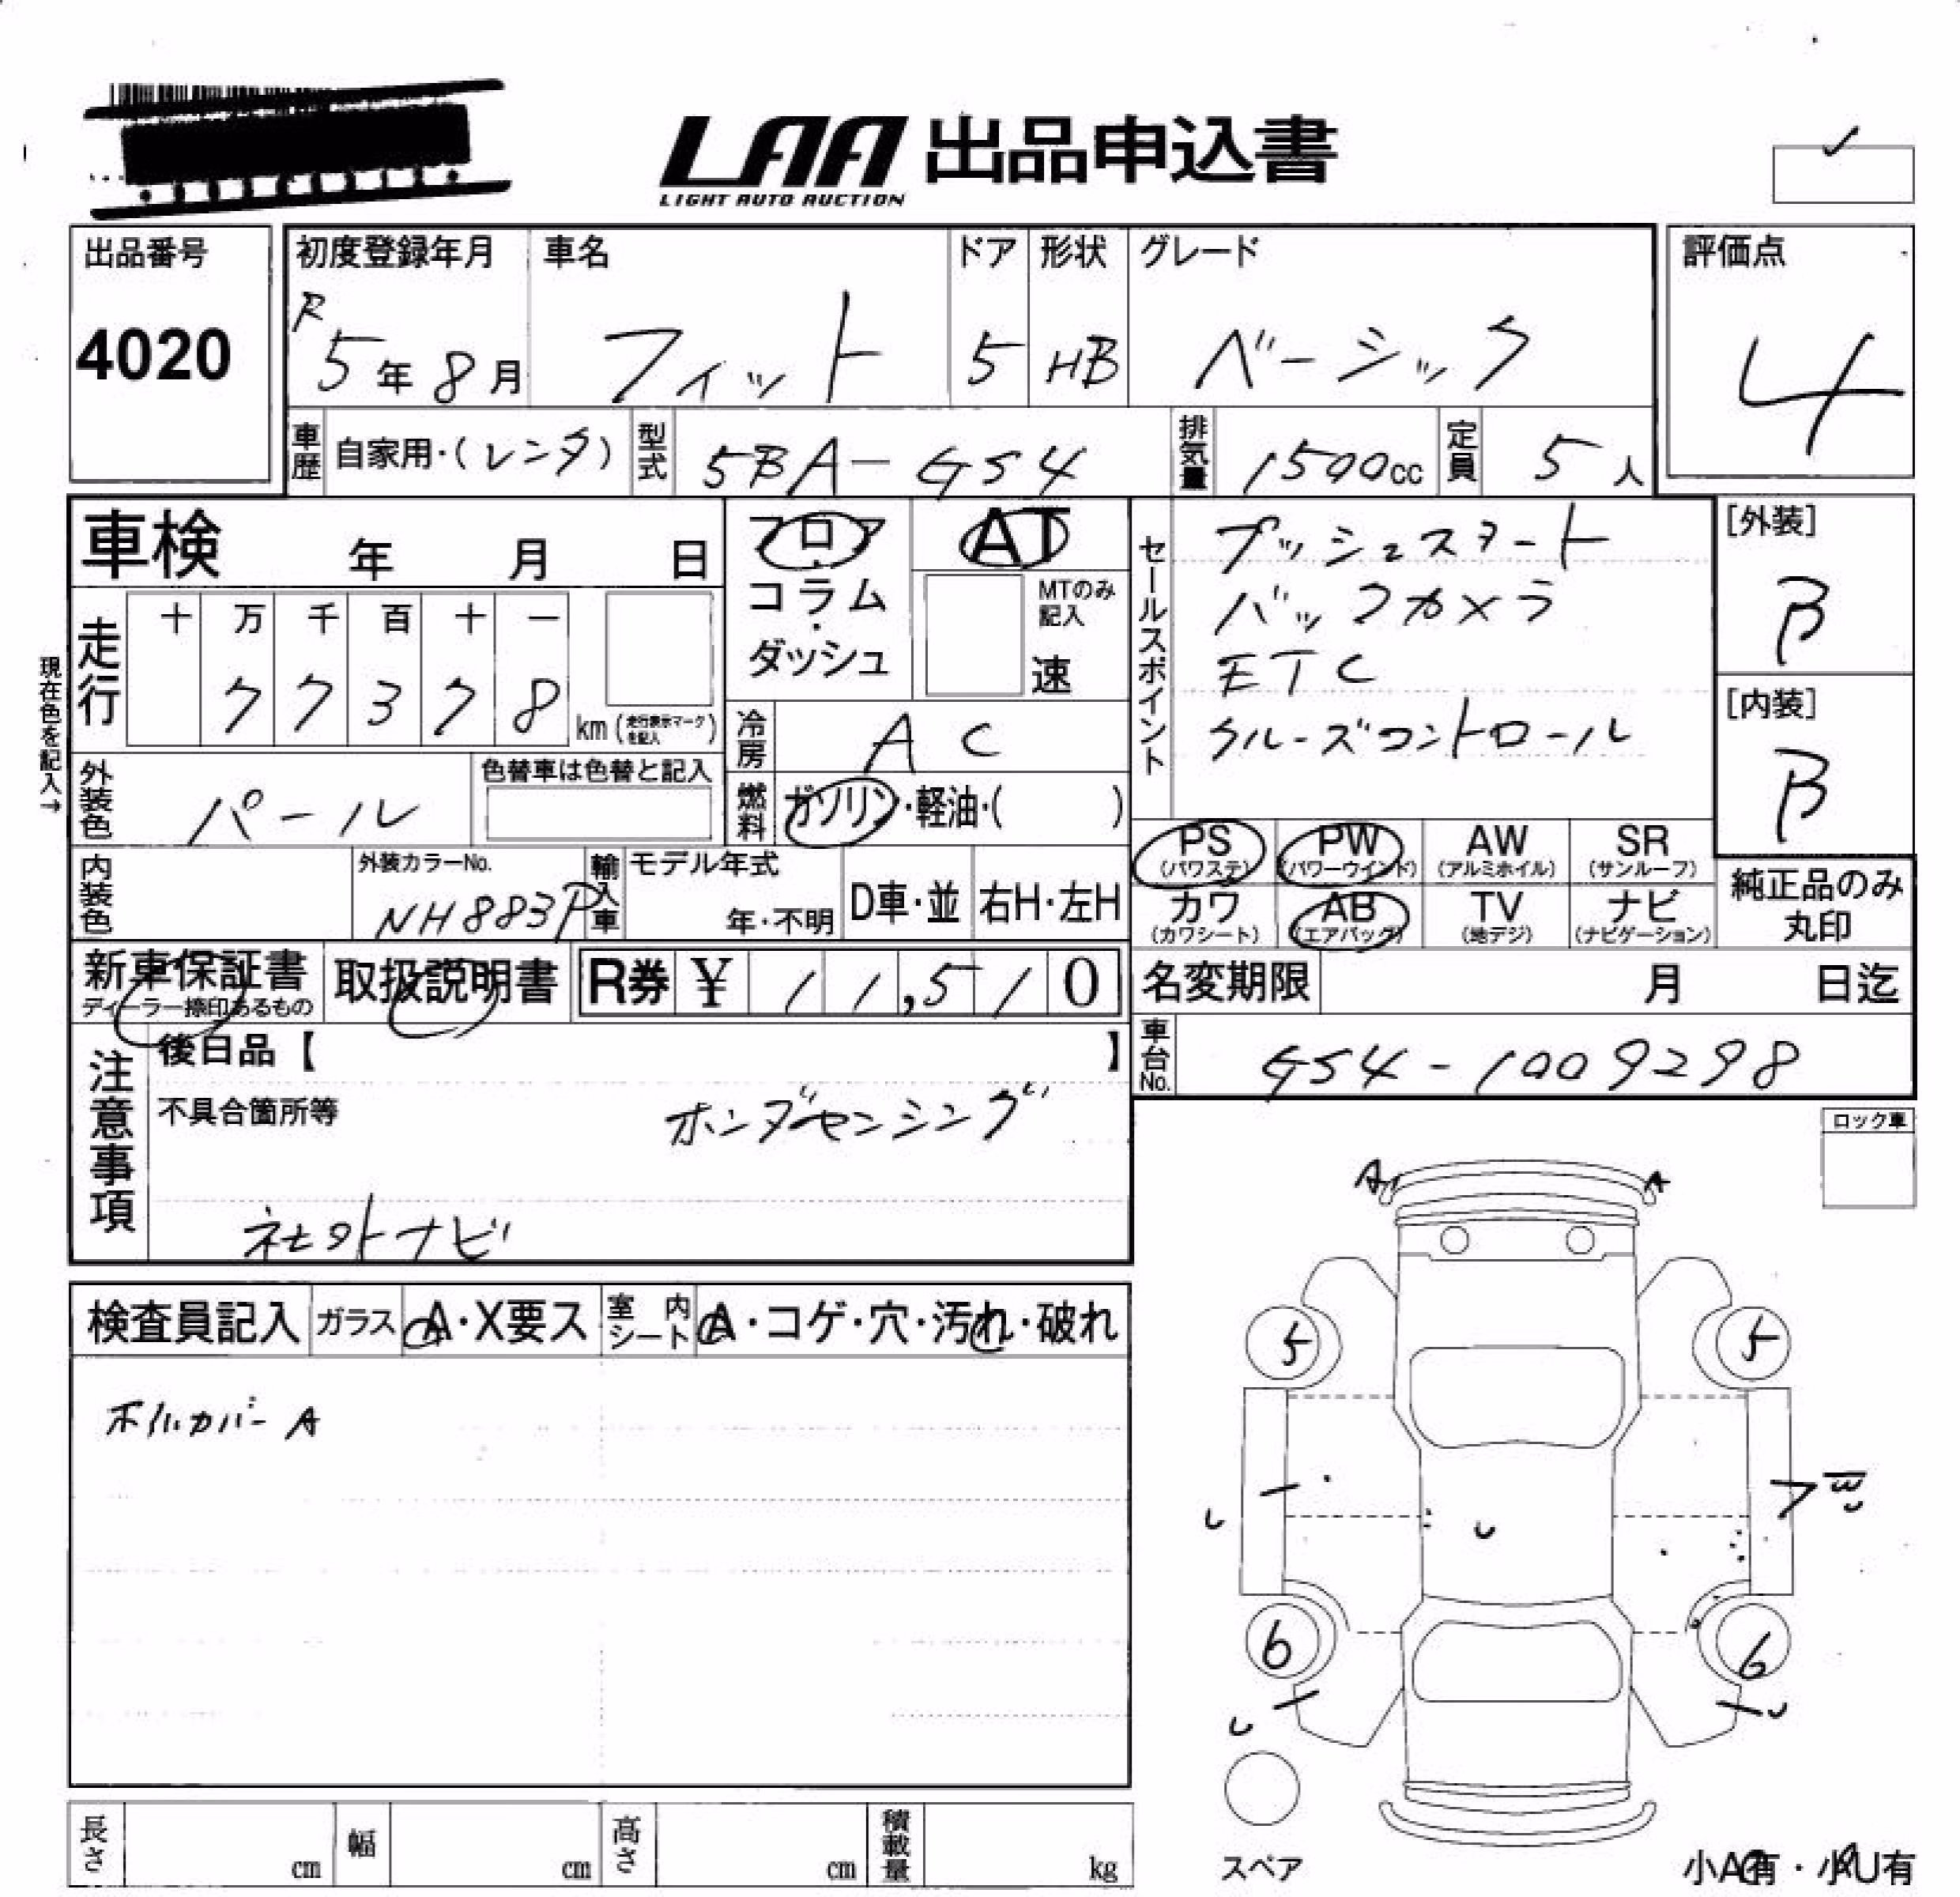 LAA 出品申込書
LIGHT AUTO AUCTION
出品番号
4020
初度登録年月
R5年8月
車名
フィット
ドア
5
形状
HB
グレード
ベーシック
評価点
4
車歴
自家用・(レンタ)
型式
5BA-GS4
排気量
1500cc
定員
5人
車検 年 月 日
走行
十 万 千 百 十 一
7 7 3 7 8
km (走行表示マークを記入)
現在色を記入→
外装色
パール
色替車は色替と記入
内装色
外装カラーNo.
NH883P
輸入車
モデル年式
年・不明
D車・並
右H・左H
フロア・コラム・ダッシュ
AT
MTのみ記入
速
冷房
AC
燃料
ガソリン・軽油・( )
セールスポイント
プッシュスタート
バックカメラ
ETC
クルーズコントロール
[外装]
B
[内装]
B
PS (パワステ) PW (パワーウインド) AW (アルミホイル) SR (サンルーフ)
カワ (カワシート) AB (エアバッグ) TV (地デジ) ナビ (ナビゲーション)
純正品のみ丸印
新車保証書
ディーラー捺印あるもの
取扱説明書
R券 ¥ 11,510
名変期限 月 日迄
車台No.
GS4-1009298
注意事項
後日品【 】
不具合箇所等
ホンダセンシング
社外ナビ
ロック車
検査員記入
ガラス
A・X要ス
室内シート
A・コゲ・穴・汚れ・破れ
ホイルカバーA
A A
5 5
6 6
スペア
長さ cm
幅 cm
高さ cm
積載量 kg
小A有・小U有